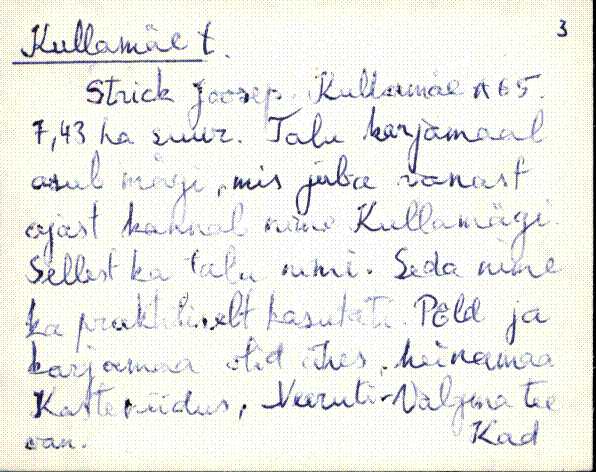 3
Kullamäe t.
Strick Joosep. Kullamäe A 65.
7,43 ha suur. Talu karjamaal
asub mägi, mis juba vanast
ajast kannab nime Kullamägi.
Sellest ka talu nimi. Seda nime
ka praktiliselt kasutati. Põld ja
karjamaa olid ühes, heinamaa
Kasteniidus, Neeruti-Valgma tee
ääres.
Kad